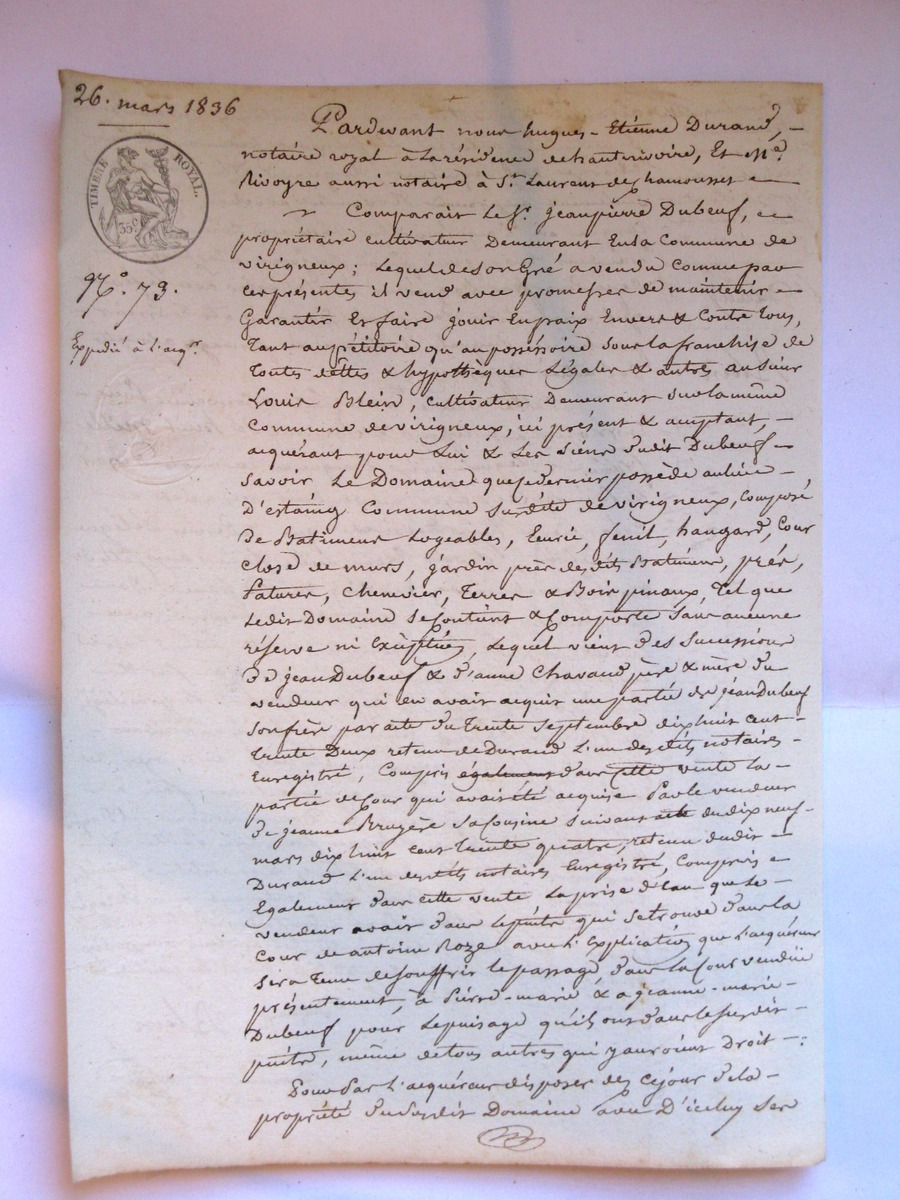 26. mars 1836
TIMBRE ROYAL.
35c
N°. 73.
Expédié à l'acqr.
Pardevant nous hugues-Etienne Durand, -
notaire royal à la résidence de hauterivoire, Et Me.
Rivoyre aussi notaire à St. Laurent de chamousset -
Comparait Le Sr. jeanpierre Dubeuf,
propriétaire cultivateur Demeurant En sa Commune de
virigneux; Lequel de son Gré a vendu Comme par
ces présentes il vend avec promesses de maintenir -
Garantir Et faire jouir En paix Envers & Contre tous,
Tant au pétitoire qu'au possessoire sous la franchise de
toutes dettes & hypothèques Légales & autres au sieur
Louis Blein, Cultivateur Demeurant sur la même
Commune de virigneux, ici présent & acceptant, -
acquérant pour Lui & Les Siens dudit Dubeuf -
Savoir Le Domaine que ce dernier possède au lieu -
D'estaing Commune Susdite de virigneux, Composé
de Batiments Logeables, Ecurie, fenil, hangard, Cour
Close de murs, jardin près desdits Batiments, prés,
Patures, Chenevier, Terres & Bois pinaux, Tel que
Ledit Domaine se Contient & Comporte Sans aucune
réserve ni Exception, Lequel vient des Successions
de jean Dubeuf & d'anne Chavand père & mère du
vendeur qui en avait acquis une partie de jean Dubeuf
son frère par acte du trente Septembre dix huit cent -
trente Deux retenu de Durand L'un desdits notaires -
Enregistré, Compris également dans cette vente La -
partie de Cour qui avait été acquise Par le vendeur
de jeanne Bruyère Sa Cousine suivant acte du dix neuf -
mars dix huit cent trente quatre, retenu dudit -
Durand L'un desdits notaires Enregistré, Compris
Egalement dans cette vente La prise d'Eau que Le -
vendeur avait dans Le puits qui se trouve dans La
Cour de antoine Roze avec L'Explication que L'acquéreur
Sera Tenu de Souffrir Le passage dans La Cour vendue
présentement, à Pierre-marie & a jeanne-marie -
Dubeuf pour Le puisage qu'ils ont dans Le Susdit -
puits, même de tous autres qui y auroient Droit -.
Pour Par L'acquéreur disposer dès ce jour de la -
propriété du Susdit Domaine avec D'iceluy Ses